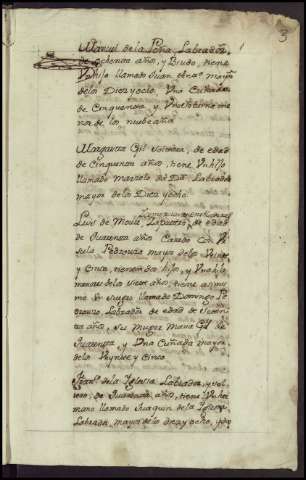 3
Manuel de la Peña, Labrador,
de ochenta años, y Biudo, tiene
Un hijo llamado Juan mayor
de los Diez y ocho, Una Cuñada
de Cinquenta, y
nor de los nuebe años
Margarita Gil, de edad
de Cinquenta años, tiene Un hijo
llamado Labrador
mayor de los Diez y ocho
Luis de Zapatero, de edad
de Quarenta años Casado con
mayor de los Veinte
y Cinco, tienen dos hijos, y Una hija
menores de los Siete años, tiene assi mis
mo Su Suegro llamado Domingo Pe
Labrador de edad de Setenta
años, Su Muger Maria Gil de
Quarenta, y Una Cuñada mayor
de los Veynte y Cinco
Franco de la Iglesia Labrador, y Sol
tero, de Quarenta años, tiene Un her
mano llamado Juaquin de la Iglesia
Labrador mayor de los diez y ocho, y